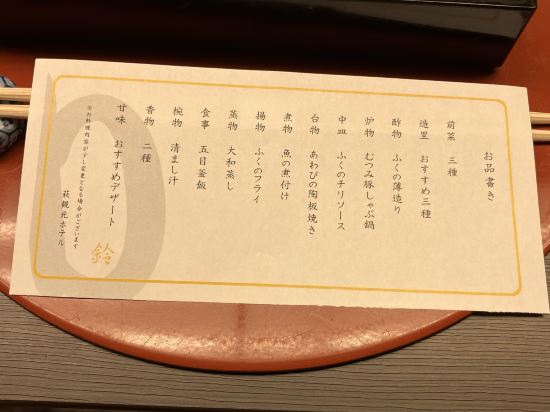 お品書き
前菜 三種
造里 おすすめ三種
酢物 ふくの薄造り
炉物 むつみ豚しゃぶ鍋
中皿 ふくのチリソース
台物 あわびの陶板焼き
煮物 魚の煮付け
揚物 ふくのフライ
蒸物 大和蒸し
食事 五目釜飯
椀物 清まし汁
香物 二種
甘味 おすすめデザート
※お料理内容が少し変更となる場合がございます
萩観光ホテル
鈴